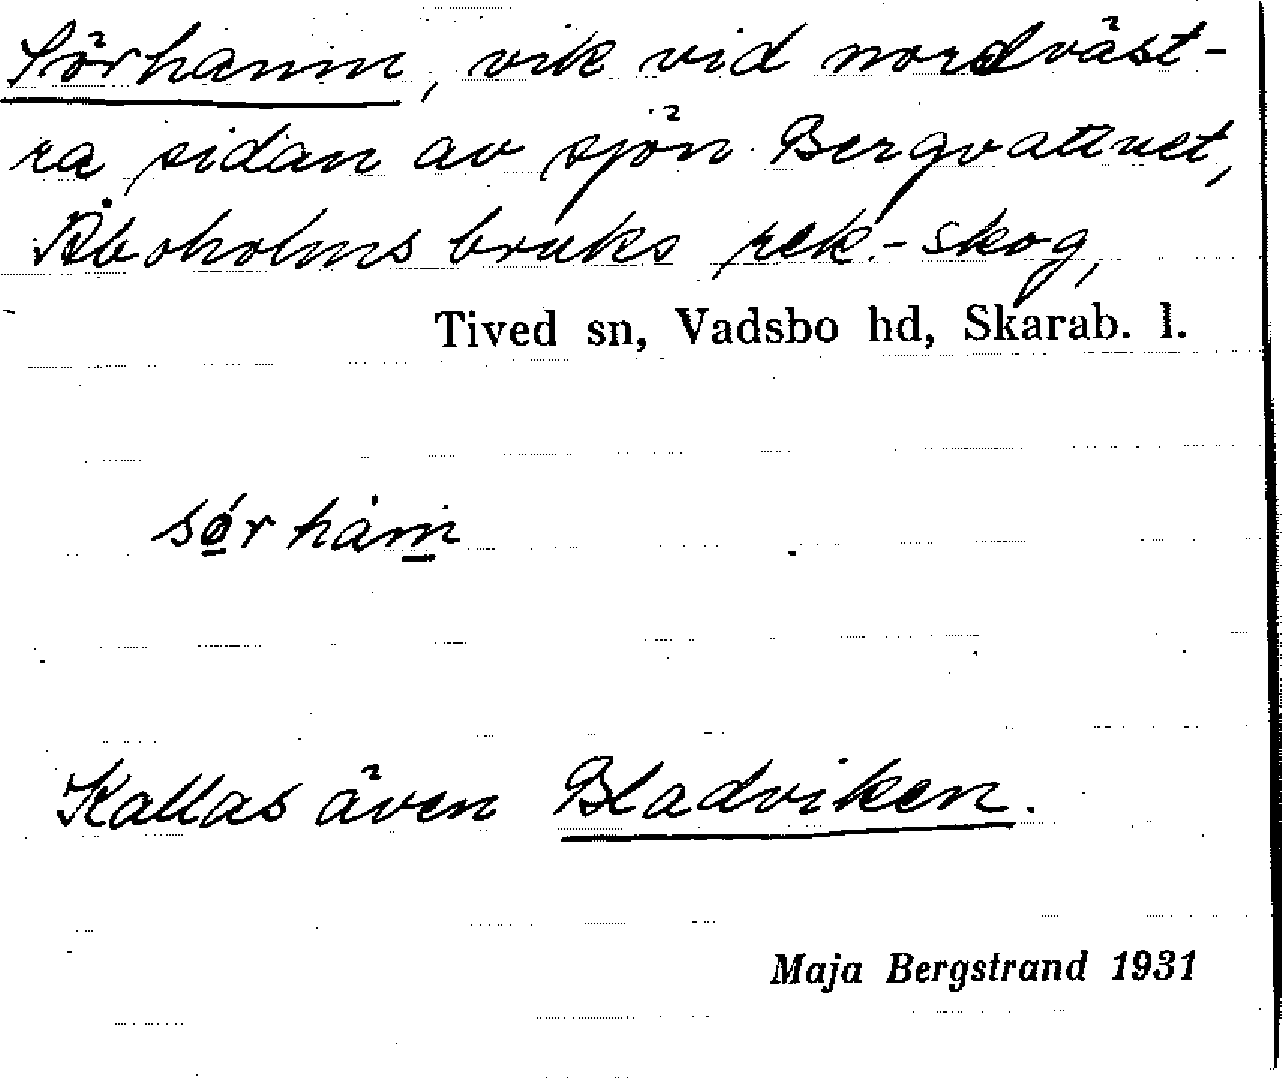 Sörhamn, vik vid nordväst-
ra sidan av sjön Bergvattnet,
Åboholms bruks rek.-skog,
Tived sn, Vadsbo hd, Skarab. l.
Kallas även Bladviken.
Maja Bergstrand 1931